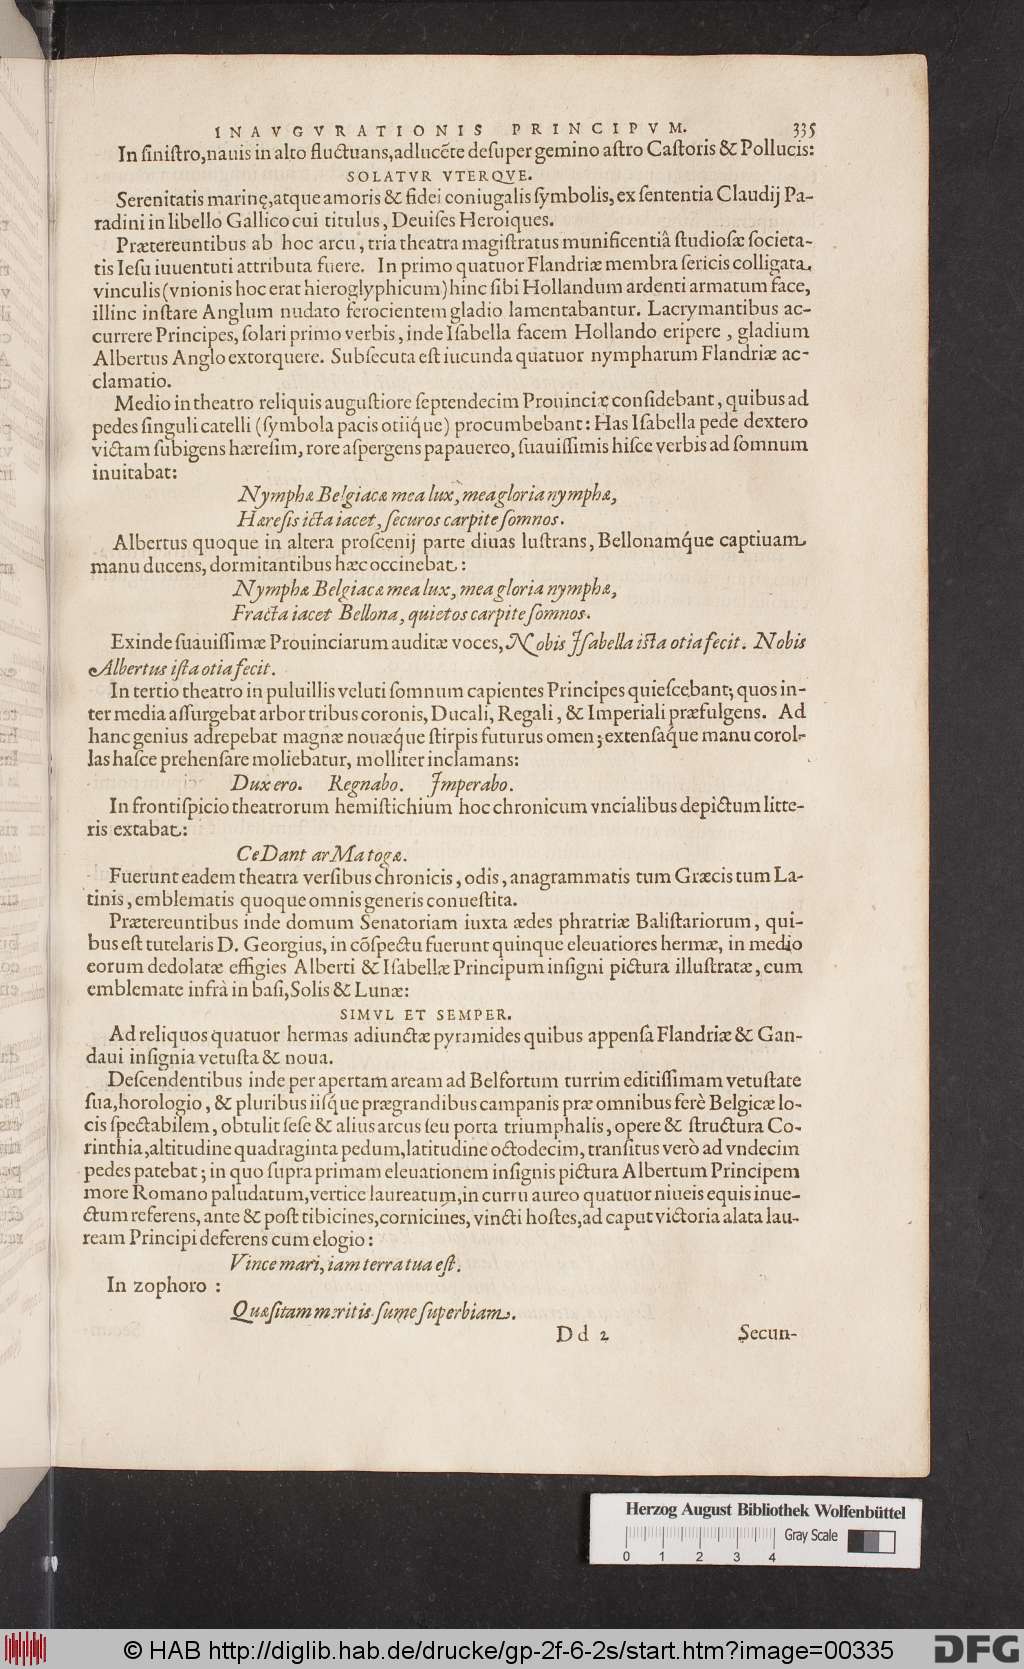 INAVGVRATIONIS PRINCIPVM. 335
In ſiniſtro, nauis in alto fluctuans, adlucẽte deſuper gemino aſtro Caſtoris & Pollucis:
SOLATVR VTERQVE.
Serenitatis marinę, atque amoris & fidei coniugalis ſymbolis, ex ſententia Claudij Pa-
radini in libello Gallico cui titulus, Deuiſes Heroiques.
Prætereuntibus ab hoc arcu, tria theatra magiſtratus munificentiâ ſtudioſæ ſocieta-
tis Ieſu iuuentuti attributa fuere. In primo quatuor Flandriæ membra ſericis colligata
vinculis (vnionis hoc erat hieroglyphicum) hinc ſibi Hollandum ardenti armatum face,
illinc inſtare Anglum nudato ferocientem gladio lamentabantur. Lacrymantibus ac-
currere Principes, ſolari primo verbis, inde Iſabella facem Hollando eripere, gladium
Albertus Anglo extorquere. Subſecuta eſt iucunda quatuor nympharum Flandriæ ac-
clamatio.
Medio in theatro reliquis auguſtiore ſeptendecim Prouinciæ conſidebant, quibus ad
pedes ſinguli catelli (ſymbola pacis otiiq́ue) procumbebant: Has Iſabella pede dextero
victam ſubigens hæreſim, rore aſpergens papauereo, ſuauiſſimis hiſce verbis ad ſomnum
inuitabat:
Nymphæ Belgiacæ mea lux, mea gloria nymphæ,
Hæreſis icta iacet, ſecuros carpite ſomnos.
Albertus quoque in altera proſcenij parte diuas luſtrans, Bellonamq́ue captiuam
manu ducens, dormitantibus hæc occinebat:
Nymphæ Belgiacæ mea lux, mea gloria nymphæ,
Fracta iacet Bellona, quietos carpite ſomnos.
Exinde ſuauiſſimæ Prouinciarum auditæ voces, Nobis Iſabella iſta otia fecit. Nobis
Albertus iſta otia fecit.
In tertio theatro in puluillis veluti ſomnum capientes Principes quieſcebant; quos in-
ter media aſſurgebat arbor tribus coronis, Ducali, Regali, & Imperiali præfulgens. Ad
hanc genius adrepebat magnæ nouæq́ue ſtirpis futurus omen; extenſaq́ue manu corol-
las haſce prehenſare moliebatur, molliter inclamans:
Dux ero. Regnabo. Imperabo.
In frontiſpicio theatrorum hemiſtichium hoc chronicum vncialibus depictum litte-
ris extabat:
CeDant arMa togæ.
Fuerunt eadem theatra verſibus chronicis, odis, anagrammatis tum Græcis tum La-
tinis, emblematis quoque omnis generis conueſtita.
Prætereuntibus inde domum Senatoriam iuxta ædes phratriæ Baliſtariorum, qui-
bus eſt tutelaris D. Georgius, in cõſpectu fuerunt quinque eleuatiores hermæ, in medio
eorum dedolatæ effigies Alberti & Iſabellæ Principum inſigni pictura illuſtratæ, cum
emblemate infrà in baſi, Solis & Lunæ:
SIMVL ET SEMPER.
Ad reliquos quatuor hermas adiunctæ pyramides quibus appenſa Flandriæ & Gan-
daui inſignia vetuſta & noua.
Deſcendentibus inde per apertam aream ad Belfortum turrim editiſſimam vetuſtate
ſua, horologio, & pluribus iiſq́ue prægrandibus campanis præ omnibus ferè Belgicæ lo-
cis ſpectabilem, obtulit ſeſe & alius arcus ſeu porta triumphalis, opere & ſtructura Co-
rinthia, altitudine quadraginta pedum, latitudine octodecim, tranſitus verò ad vndecim
pedes patebat; in quo ſupra primam eleuationem inſignis pictura Albertum Principem
more Romano paludatum, vertice laureatum, in curru aureo quatuor niueis equis inue-
ctum referens, ante & poſt tibicines, cornicines, vincti hoſtes, ad caput victoria alata lau-
ream Principi deferens cum elogio:
Vince mari, iam terra tua eſt.
In zophoro:
Quæſitam meritis ſume ſuperbiam.
Dd 2 Secun-
Herzog August Bibliothek Wolfenbüttel
Gray Scale
0 1 2 3 4
© HAB http://diglib.hab.de/drucke/gp-2f-6-2s/start.htm?image=00335
DFG